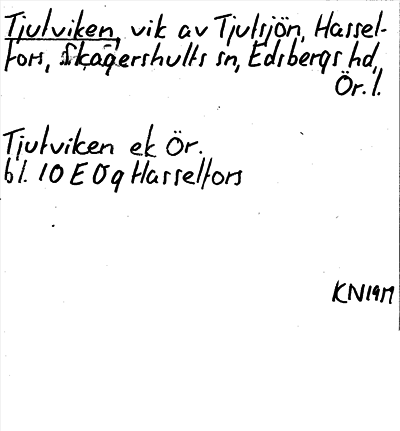 Tjutviken, vik av Tjutsjön, Hassel-
fors, Skagershults sn, Edsbergs hd,
Ör. l.
Tjutviken ek Ör.
bl. 10 E 0 g Hasselfors